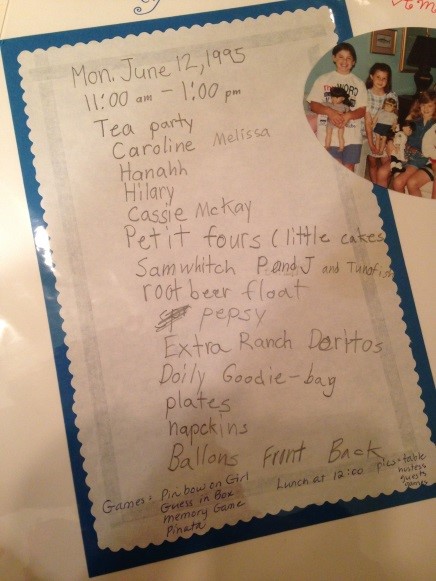 Mon. June 12, 1995
11:00 am - 1:00 pm
Tea party
Caroline Melissa
Hanahh
Hilary
Cassie McKay
Petit fours (little cakes
Samwhitch P and J and Tunafish
root beer float
pepsy
Extra Ranch Doritos
Doily Goodie-bag
plates
napckins
Ballons Front Back
Games: Pin bow on Girl
Guess in Box
memory Game
Pinata
Lunch at 12:00
pics - table
hostess
guests
games
WORD